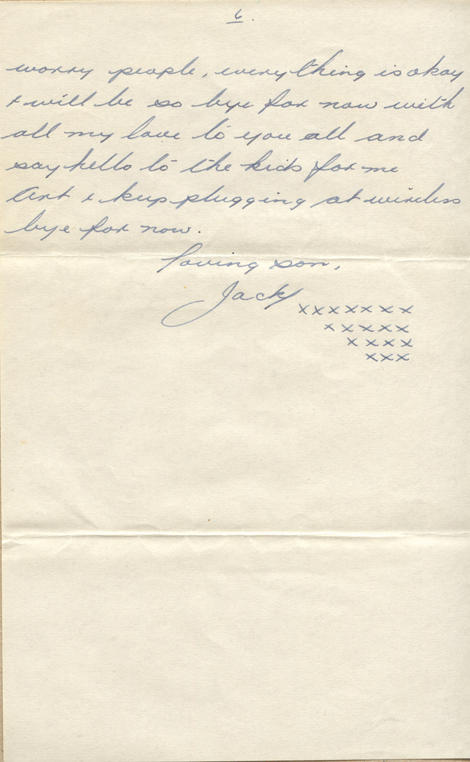 6.
worry people, everything is okay
+ will be so bye for now with
all my love to you all and
say hello to the kids for me
Art + keep plugging at wireless
bye for now.
Loving son,
Jack xxxxxxx
xxxxx
xxxx
xxx